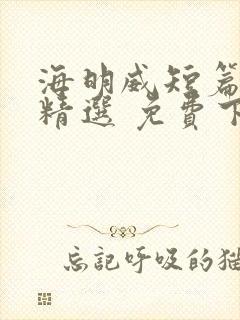 海明威短篇
精選 免費下
忘記呼吸的猫